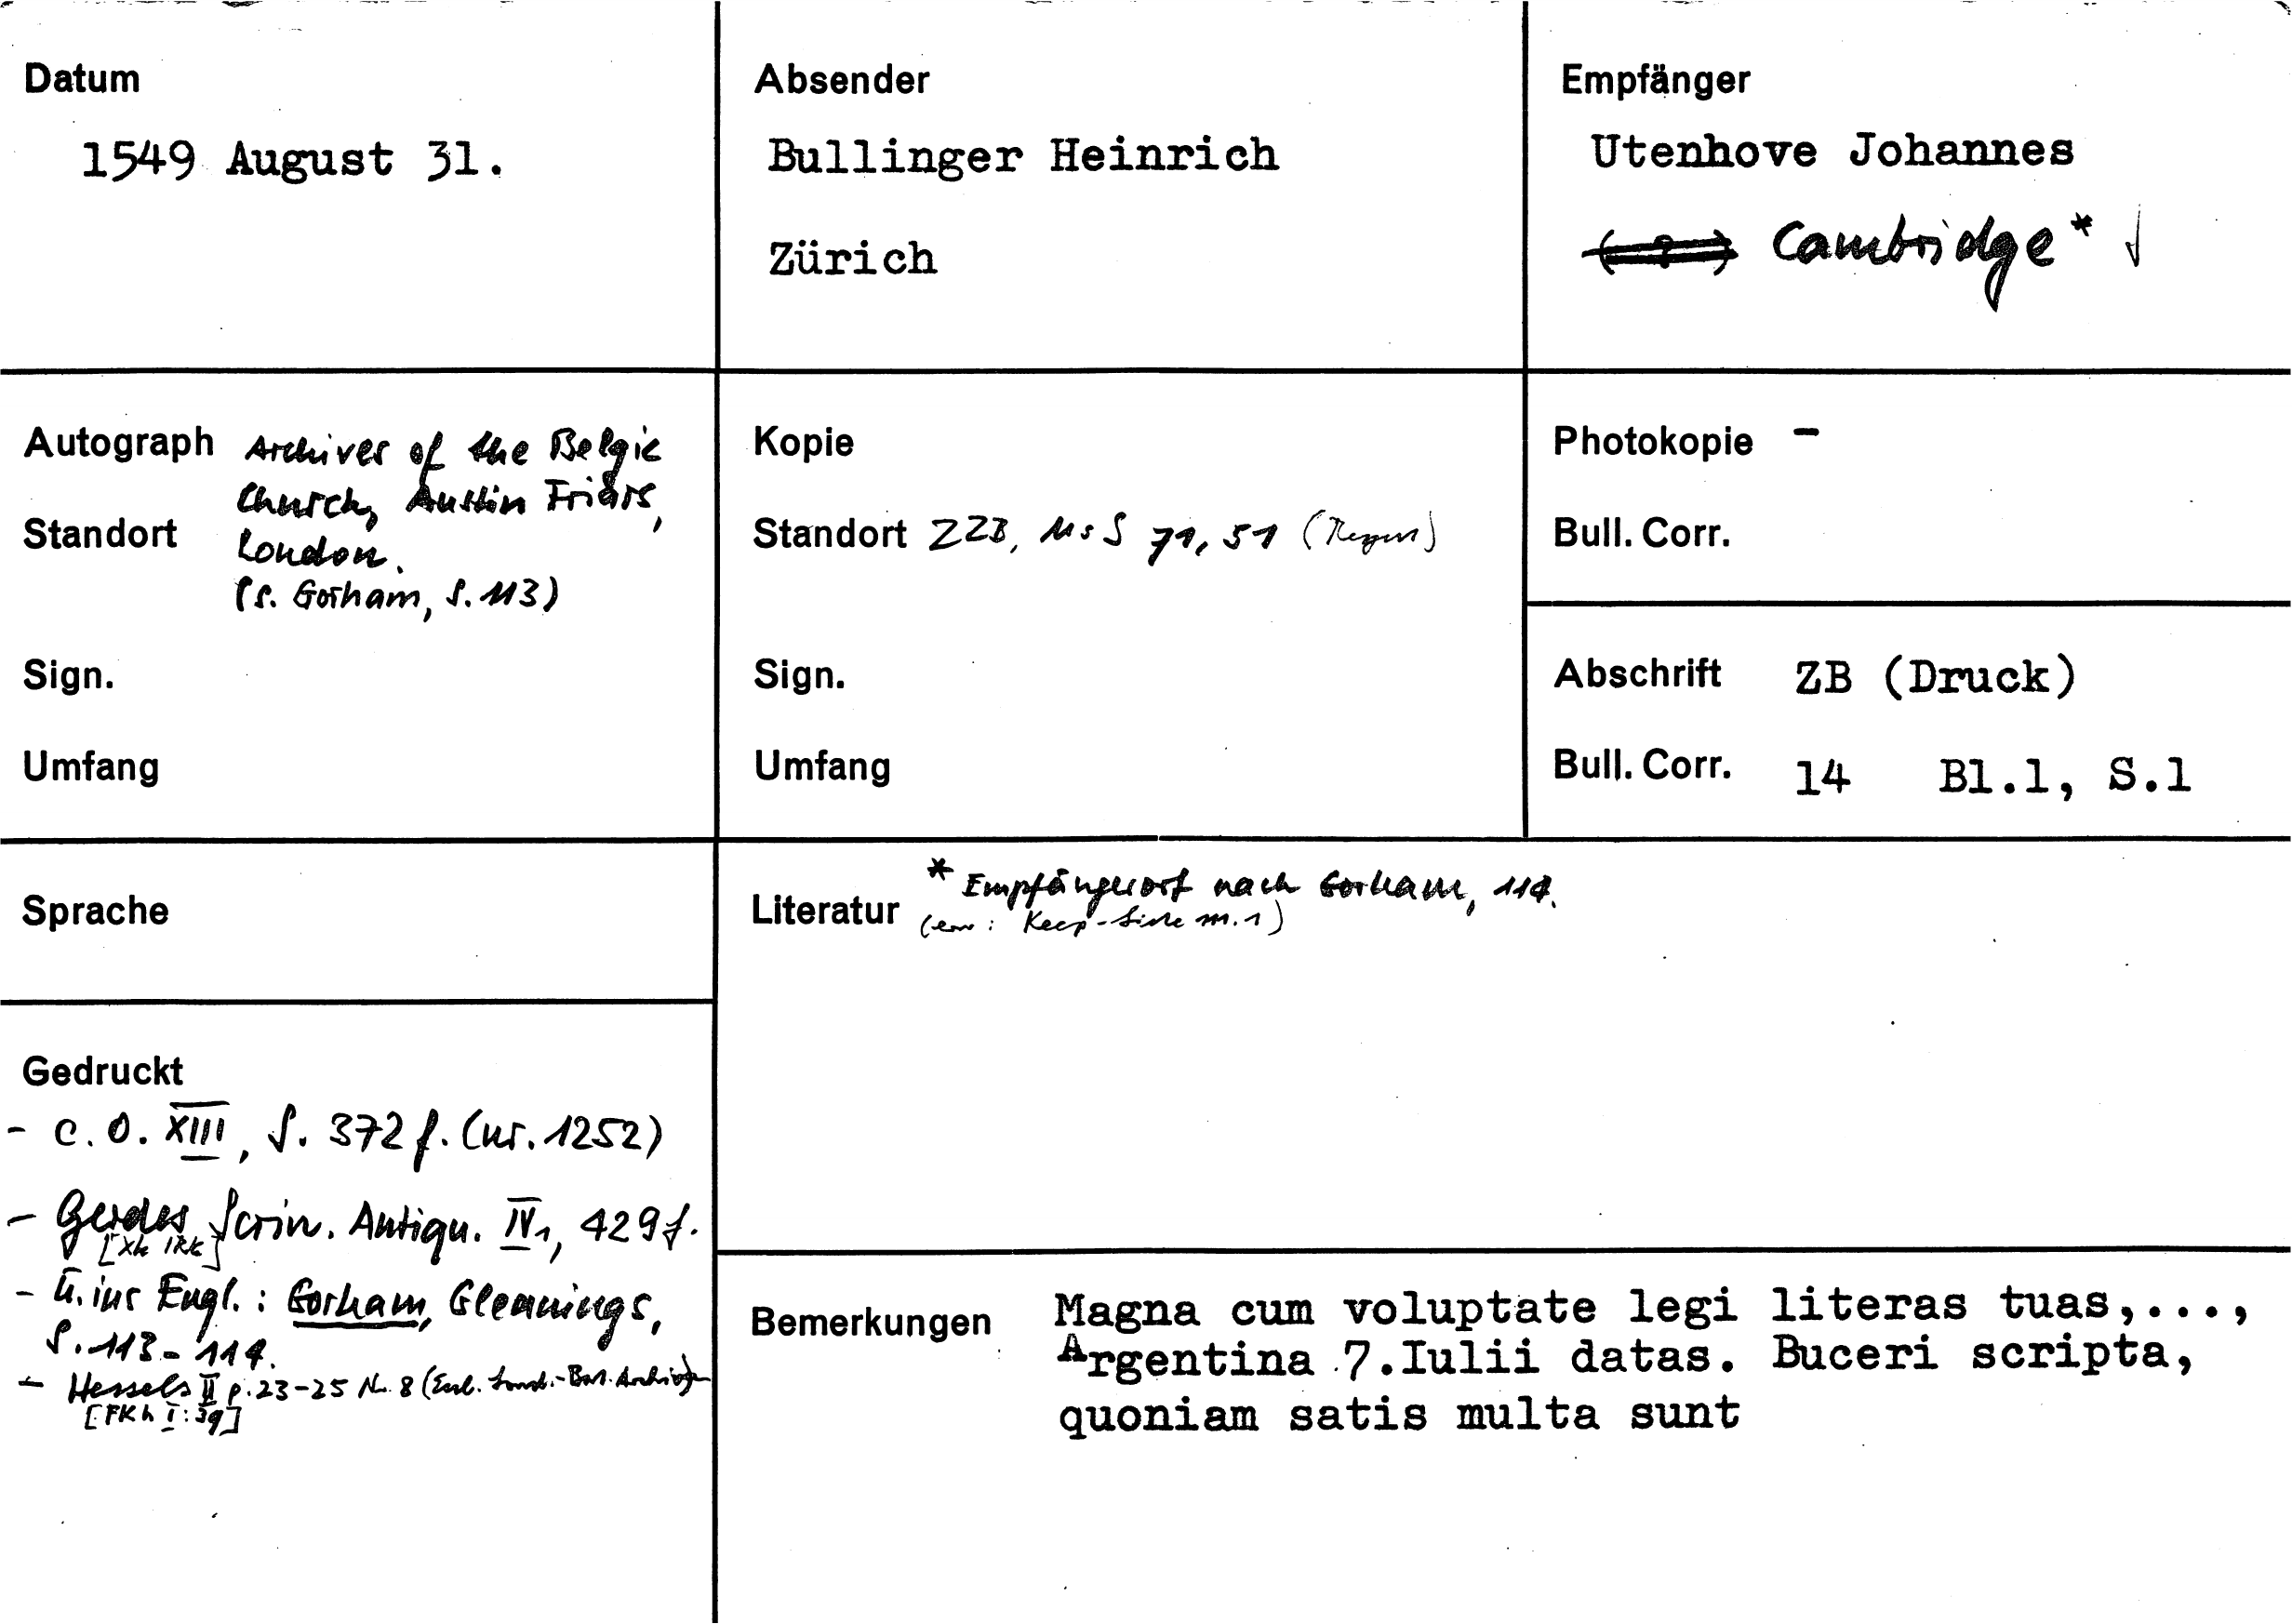 Datum
1549 August 31.
Absender
Bullinger Heinrich
Zürich
Empfänger
Utenhove Johannes
Cambridge*
Autograph Archives of the Belgic
Church, Austin Friars,
Standort London.
(s. Gorham, S. 113)
Sign.
Umfang
Kopie
Standort ZZB, Ms S 71, 51 (Regest)
Sign.
Umfang
Photokopie -
Bull. Corr.
Abschrift ZB (Druck)
Bull. Corr. 14 Bl.1, S.1
Sprache
Literatur * Empfängerort nach Gorham, 114.
Gedruckt
- C.O. XIII, S. 372 f. (nr. 1252)
- Gerdes Scrin. Antiqu. IV1, 429 f.
- Ü. ins Engl.: Gorham, Gleanings,
S. 113-114.
- Hessels II p. 23-25 Nr. 8
Bemerkungen Magna cum voluptate legi literas tuas,...,
Argentina 7.Iulii datas. Buceri scripta,
quoniam satis multa sunt